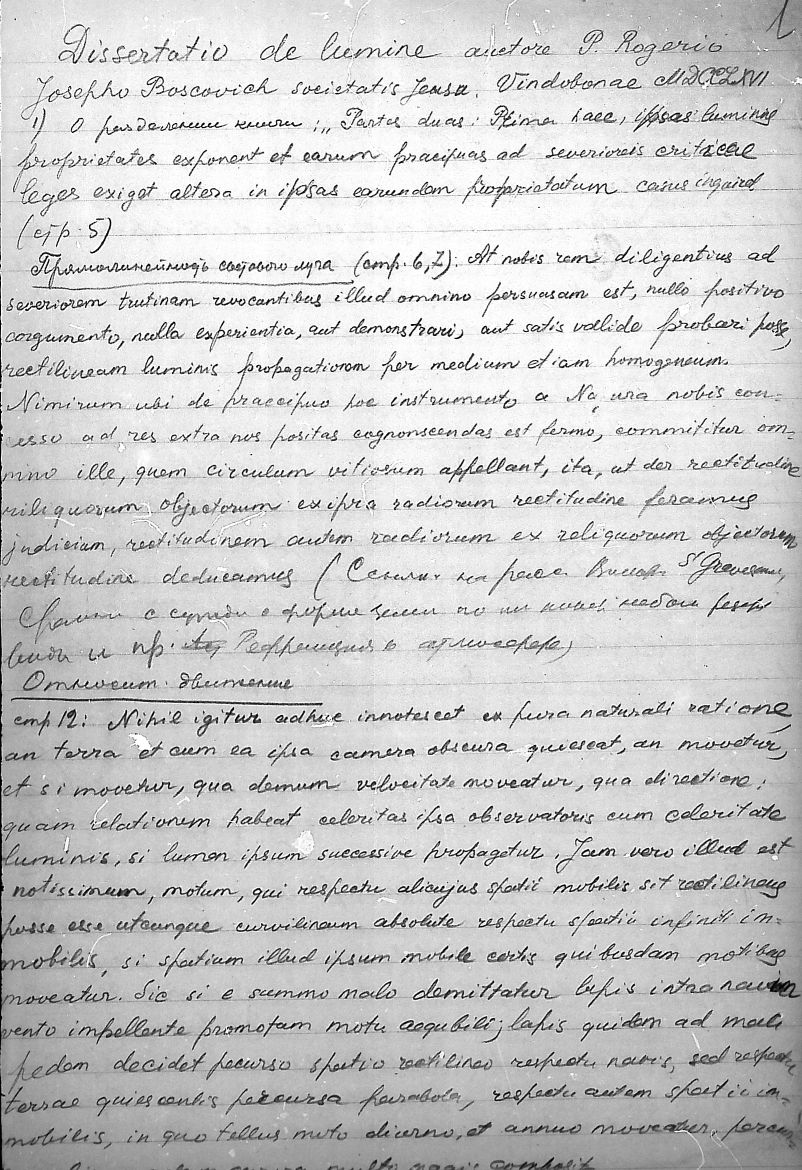 1
Dissertatio de lumine auctore P. Rogerio
Josepho Boscovich societatis Jesu. Vindobonae MDCCLXVI
1) О разделении книги: „Partes duas: Prima haec, ipsas luminis
proprietates exponent et earum praecipuas ad severioris criticae
leges exiget altera in ipsas earundem proprietatum causas inquiret
(стр. 5)
Прямолинейность светового луча (стр. 6, 7). At nobis rem diligentius ad
severiorem trutinam revocantibus illud omnino persuasum est, nullo positivo
argumento, nulla experientia, aut demonstrari, aut satis valide probari posse,
rectilineam luminis propagationem per medium etiam homogeneum.
Nimirum ubi de praecipuo poc instrumento a Na ura nobis con-
cesso ad res extra nos positas cognonscendas est fermo, committitur om-
nino ille, quem circulum vitiosum appellant, ita, ut der rectitudine
reliquorum objectorum ex ipsa radiorum rectitudine feramus
judicium, rectitudinem autem radiorum ex reliquorum objectorum
rectitudine deducamus (Ссылк. на
с о форме
и пр. Рефракция в атмосфере)
Относит. движение
стр 12: Nihil igitur adhuc innotescet ex pura naturali ratione,
an terra et cum ea ipsa camera obscura quiescat, an movetur,
et si movetur, qua demum velocitate moveatur, qua directione;
quam relationem habeat celeritas ipsa observatoris cum celeritate
luminis, si lumen ipsum successive propagetur. Jam vero illud est
notissimum, motum, qui respectu alicujus spatii mobilis sit rectilineus
posse esse utcunque curvilineum absolute respectu spatii infiniti im-
mobilis, si spatium illud ipsum mobile certis quibusdam motibus
moveatur. Sic si e summo malo demittatur lapis intra navim
vento impellente promotam motu aequbili; lapis quidem ad mali
pedem decidet percurso spatio rectilineo respectu navis, sed respectu
terrae quiescentis percursa parabola, respectu autem spatii im-
mobilis, in quo tellus moto diurno, et annuo moveatur, percur-
multo magis composit